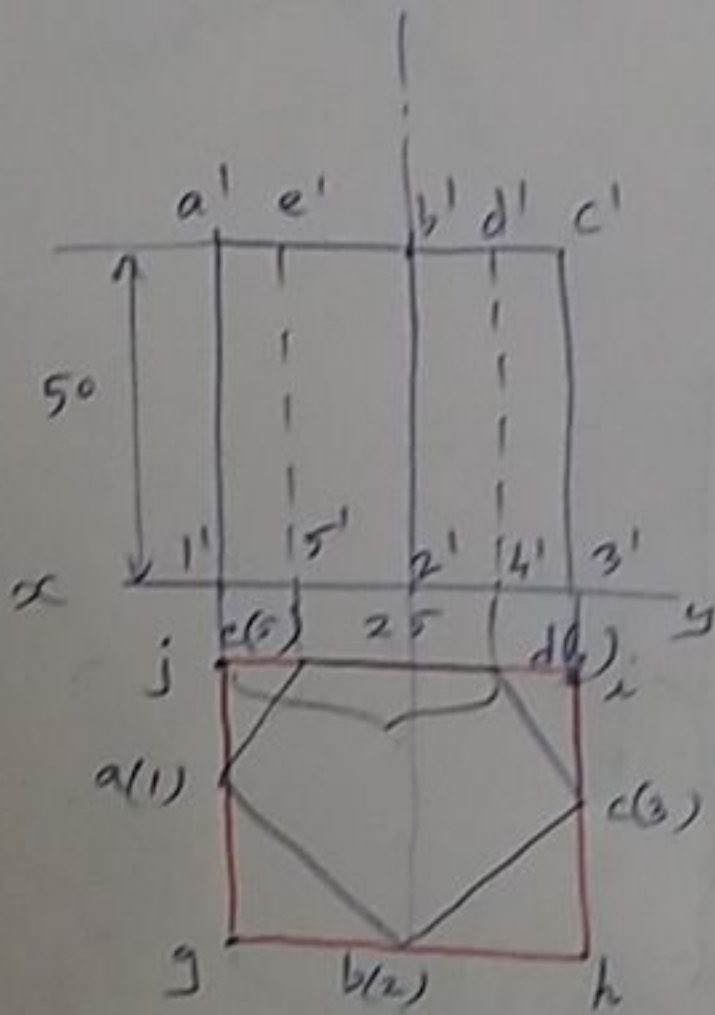 a' e' b' d' c'
50
1' 5' 2' 4' 3'
x y
e(5) 25
j i
a(1) c(3)
g b(2) h